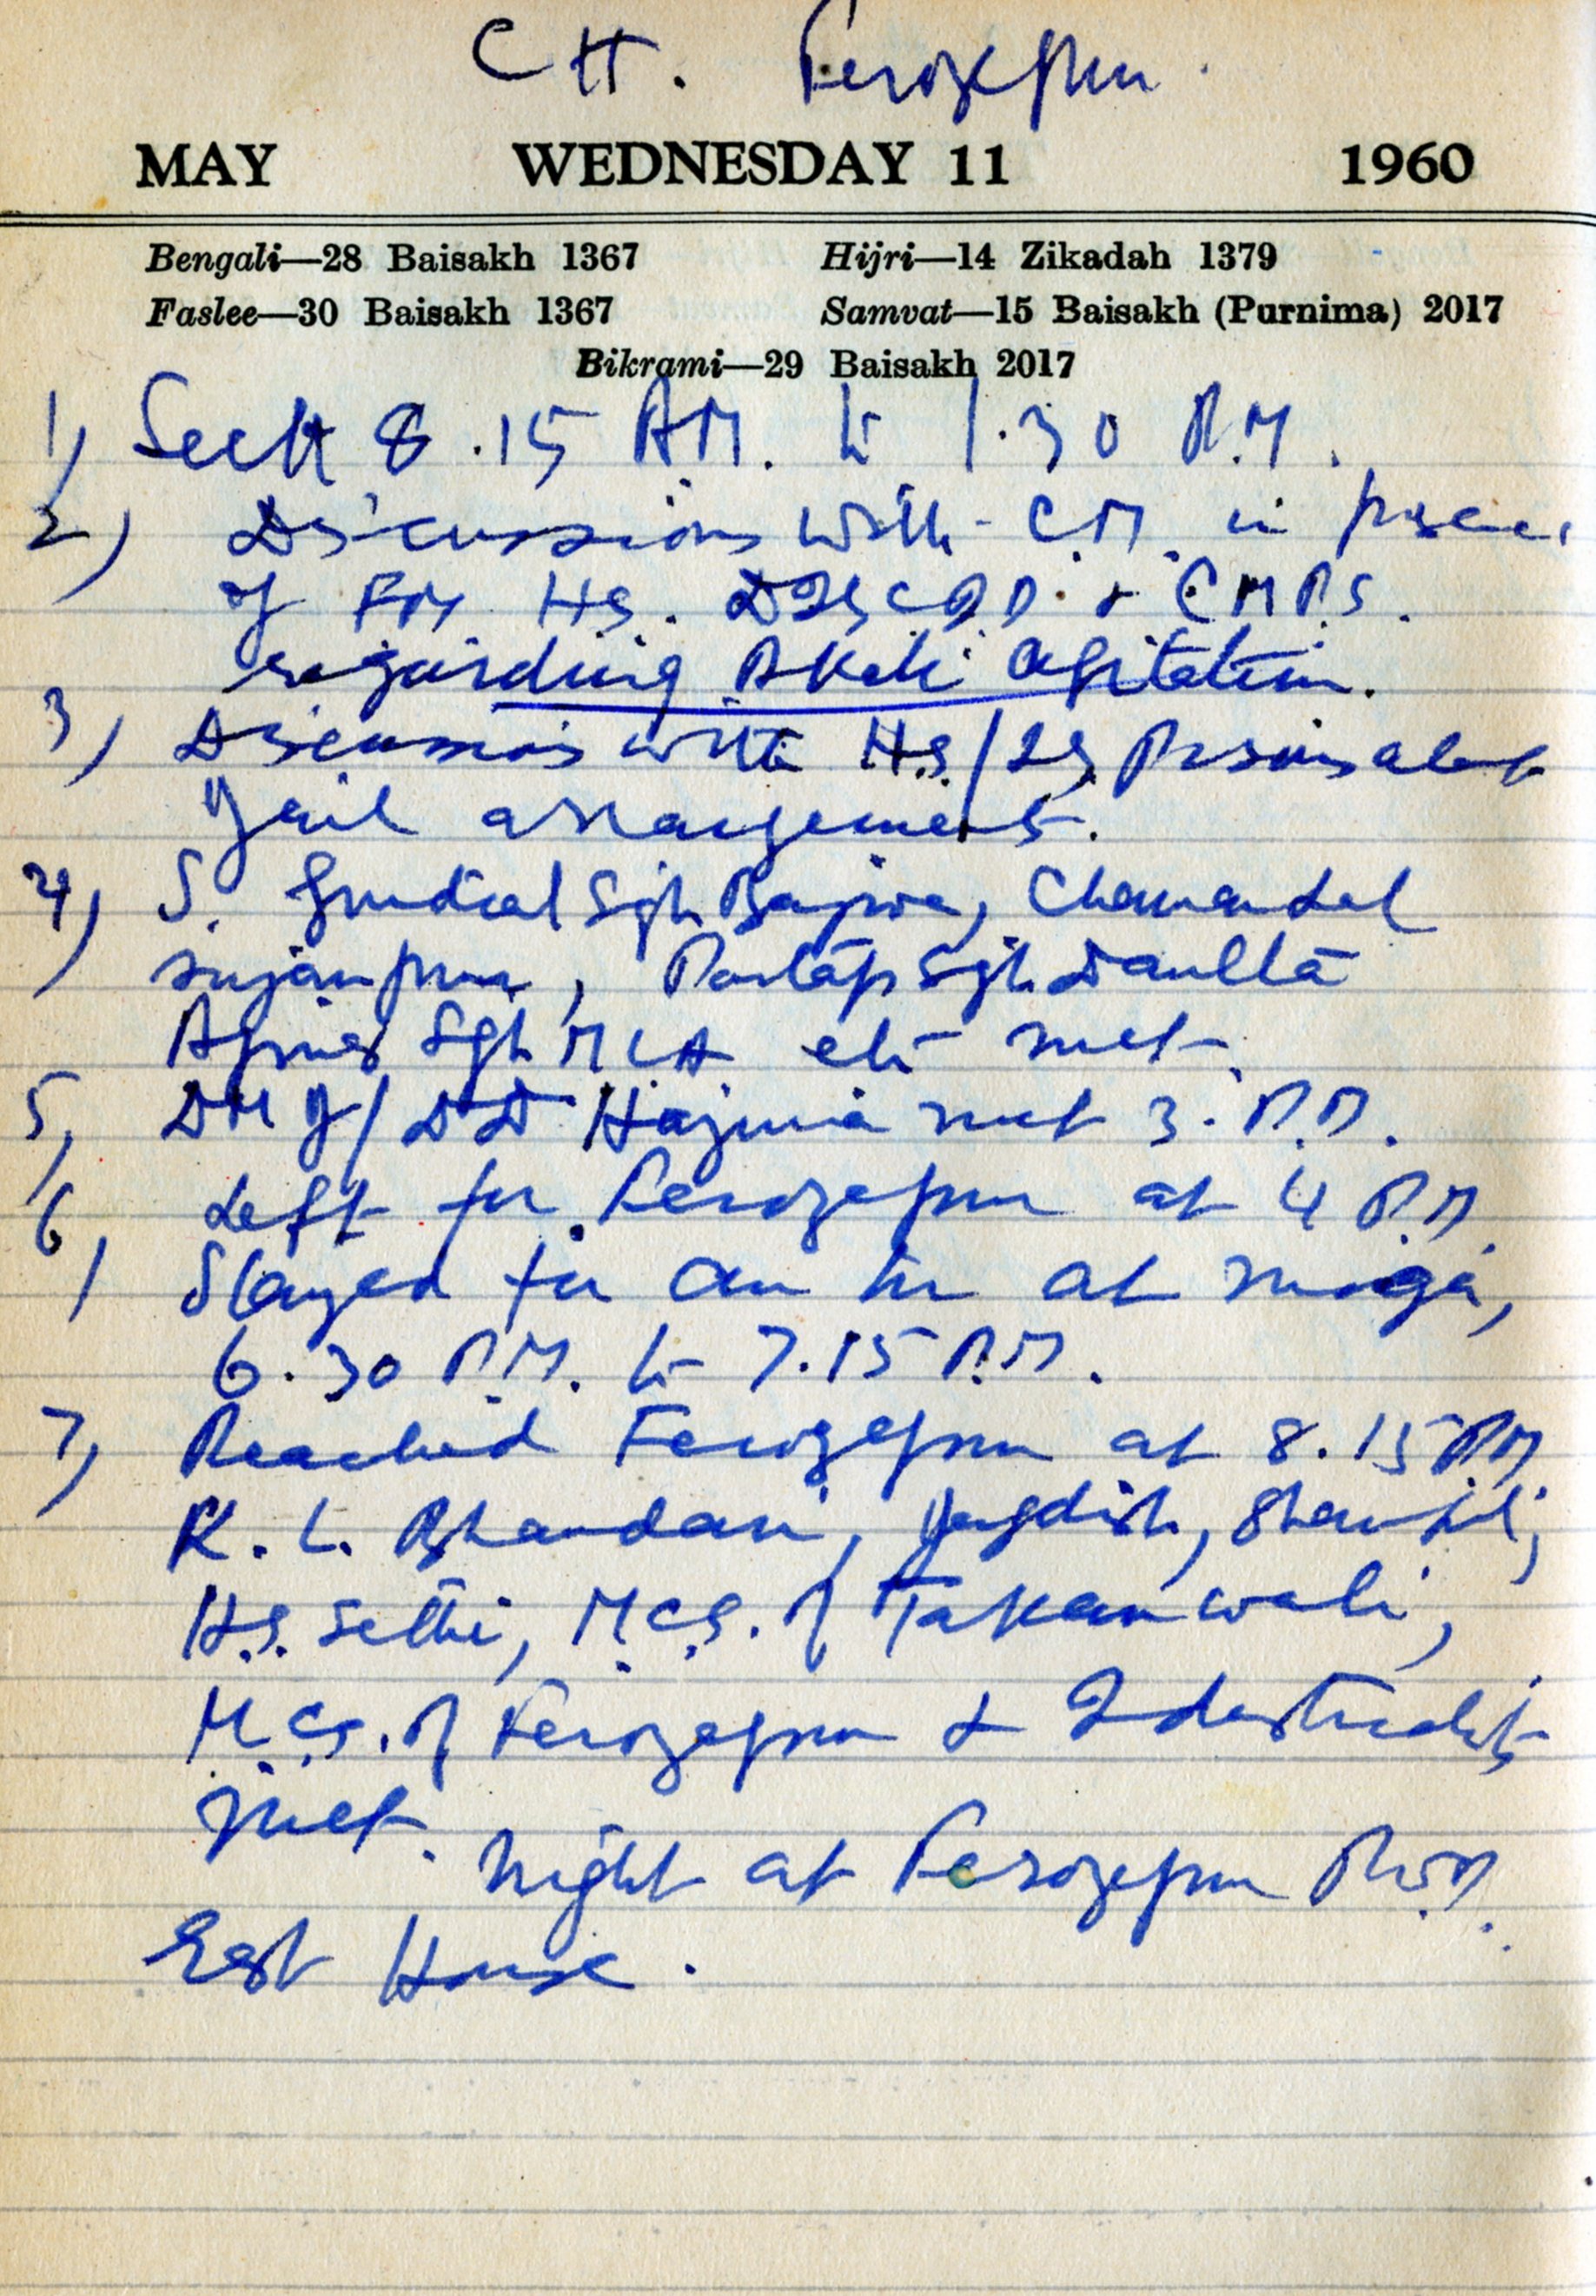 CH. Ferozepur
MAY WEDNESDAY 11 1960
Bengali—28 Baisakh 1367 Hijri—14 Zikadah 1379
Faslee—30 Baisakh 1367 Samvat—15 Baisakh (Purnima) 2017
Bikrami—29 Baisakh 2017
1) Sectt 8.15 A.M. to 1.30 P.M.
2) Discussions with C.M. in
of FM HS. & C.M.P.S.
regarding Akali agitation.
3) Discussions with H.S/IG Prisons about
Jail arrangements.
4) S. Gurdial Sgh Bajwa, Chaman Lal
Sujanpur, Partap Sgh Daulta
Sgh MLA etc met.
5) met 3. P.M.
6) Left for Ferozepur at 4 P.M.
Stayed for an hr at Moga,
6.30 P.M. to 7.15 P.M.
7) Reached Ferozepur at 8.15 PM
K. L. Bhandari, Jagdish,
H.S. Sethi, M.Cs. of
M.Cs. of Ferozepur & Industrialists
met. Night at Ferozepur
Rest House.